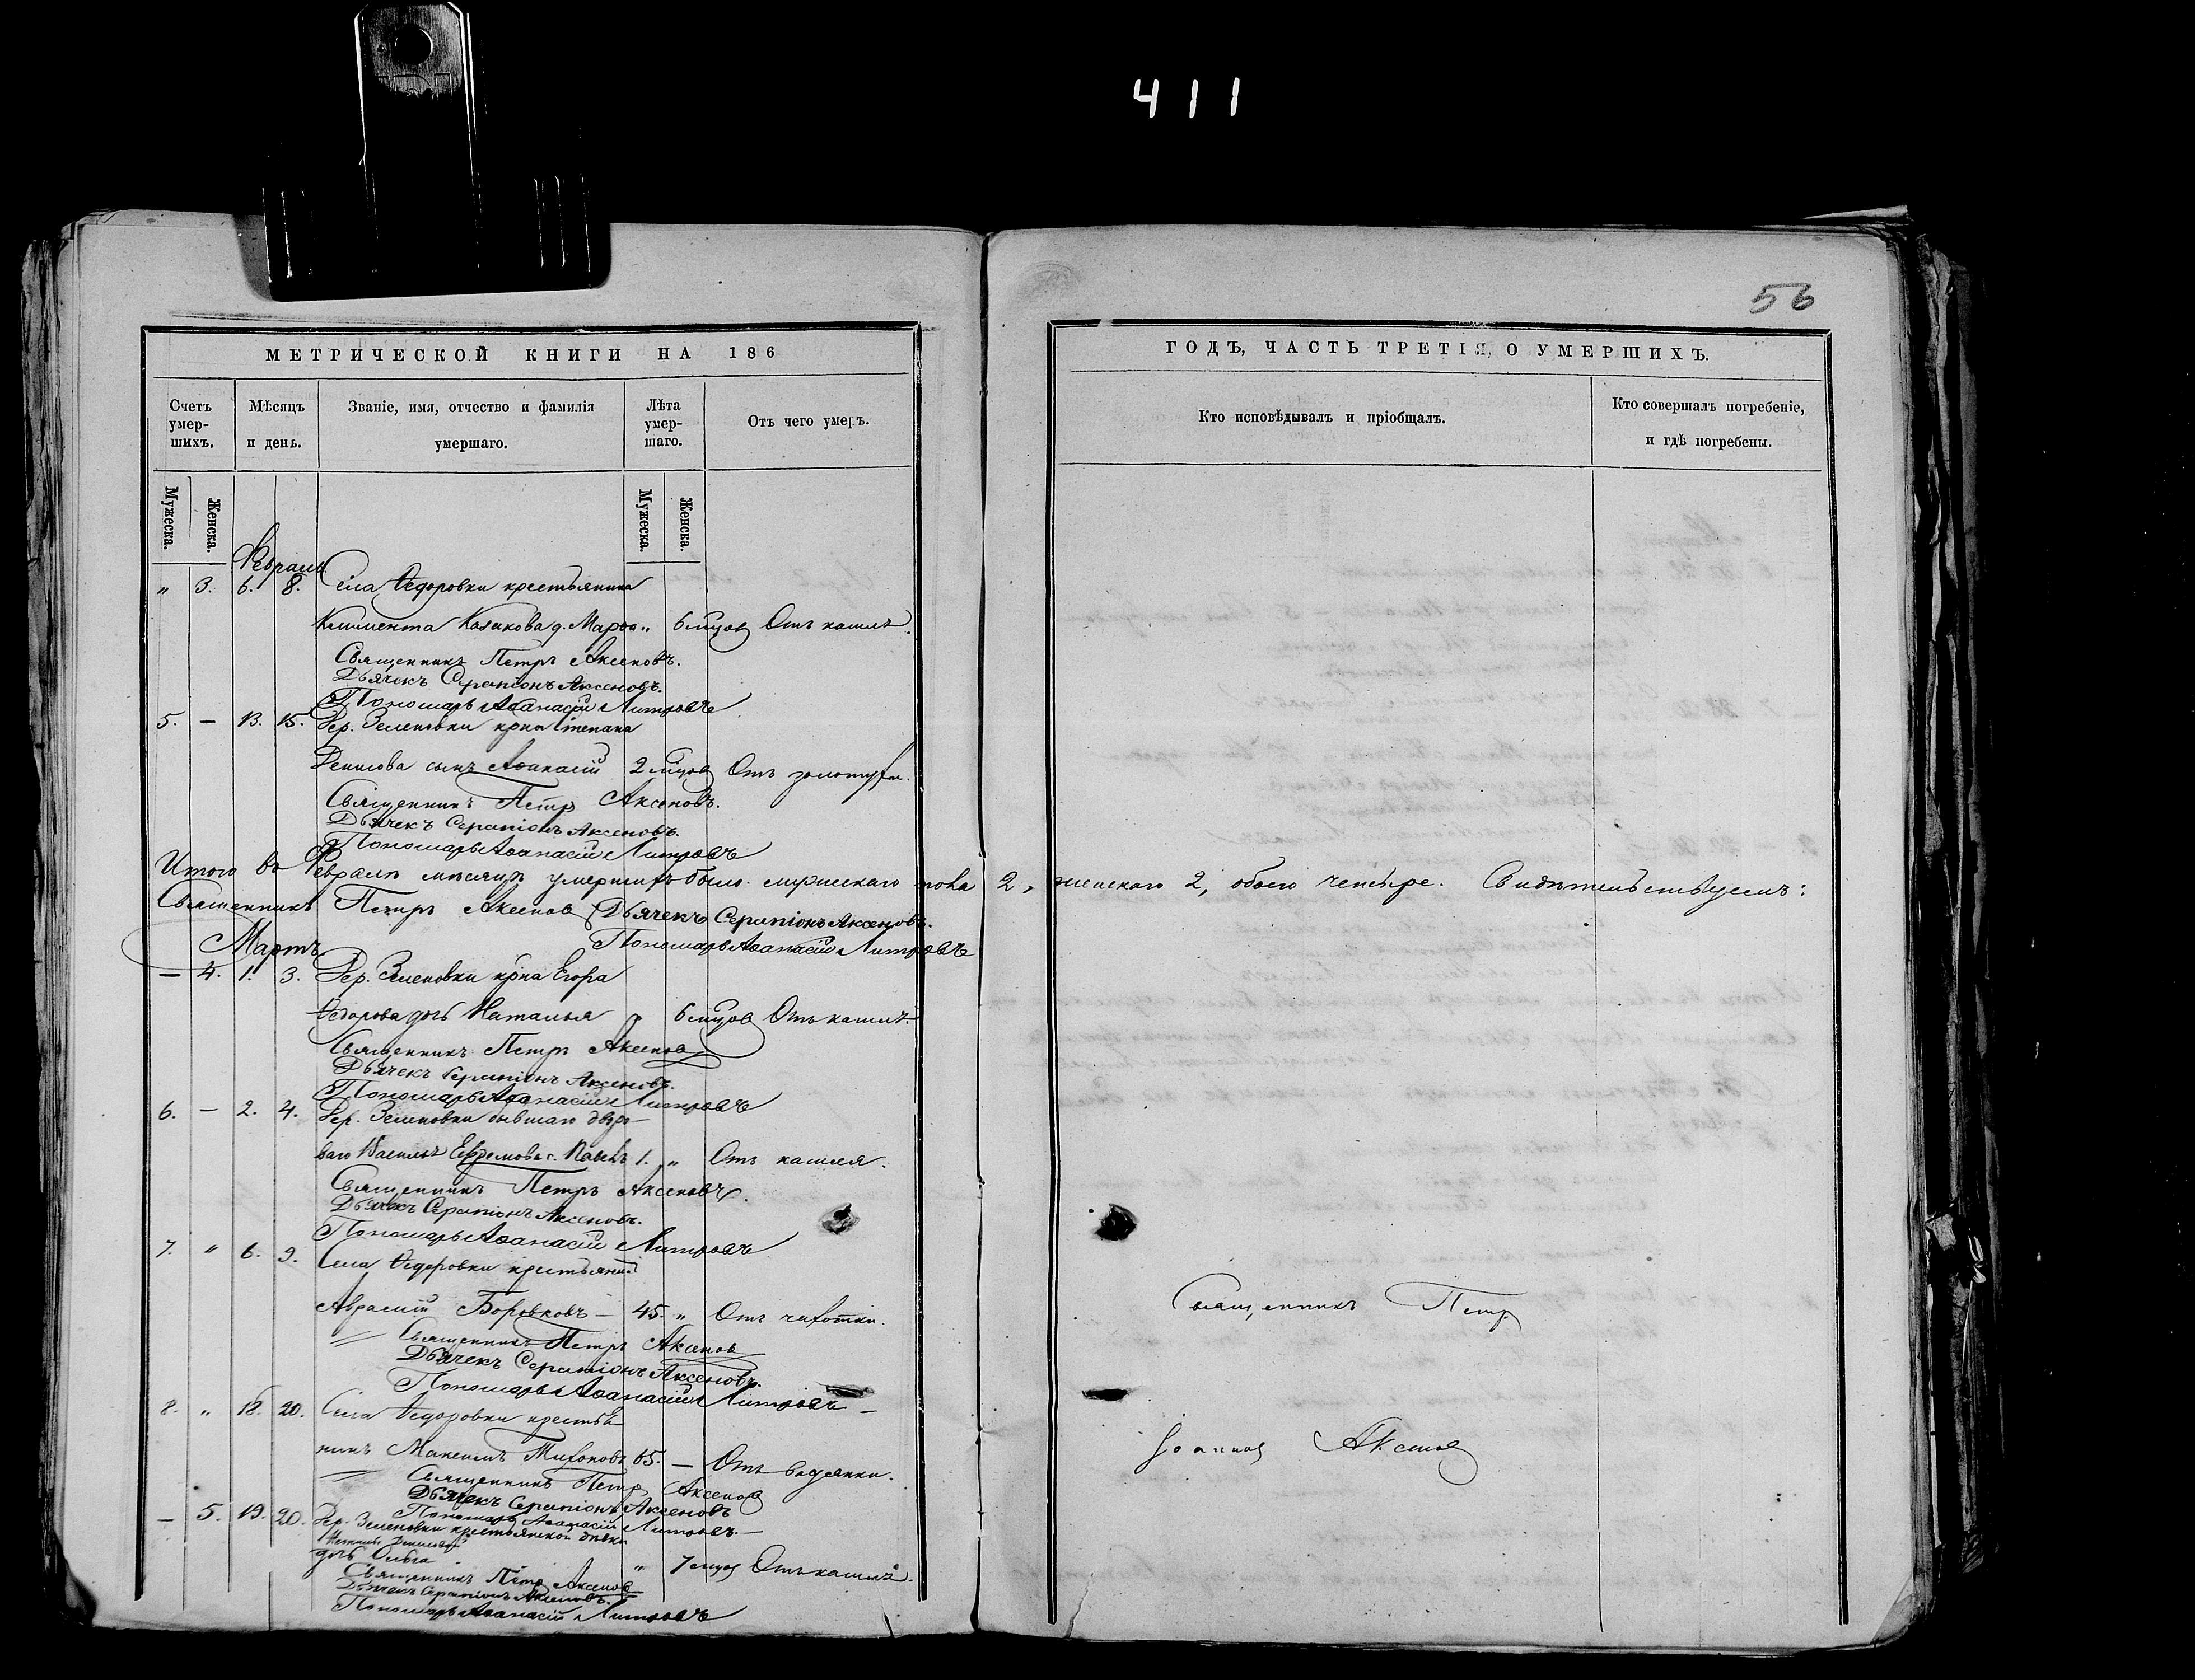 411
56
МЕТРИЧЕСКОЙ КНИГИ НА 186
Счетъ умер-шихъ.
Мѣсяцъ и день.
Званіе, имя, отчество и фамилія умершаго.
Лѣта умер-шаго.
Отъ чего умеръ.
Мужеска.
Женска.
Мужеска.
Женска.
Февраль
" 3. 6. 8. Села Ѳедоровки крестьянина
Климента Казакова д. Марѳа " 6 мцов Отъ кашля.
Священникъ Петръ Аксеновъ.
Дьячекъ Серапіонъ Аксеновъ.
Пономарь Аѳанасій
5. — 13. 15. Дер. Зеленовки крна Степана
Денисова сынъ Аѳанасій 2 мцов Отъ золотухи.
Священникъ Петръ Аксеновъ.
Дьячекъ Серапіонъ Аксеновъ.
Пономарь Аѳанасій
Итого въ Февралѣ мѣсяцѣ умершихъ было мужескаго пола 2, женскаго 2, обоего четыре. Свидѣтельствуемъ:
Священникъ Петръ Аксенов Дьячекъ Серапіонъ Аксеновъ.
Пономарь Аѳанасій
Мартъ
— 4. 1. 3. Дер. Зеленовки крна Егора
Ѳедорова дочь Наталья " 6 мцов Отъ кашля.
Священникъ Петръ Аксенов
Дьячекъ Серапіонъ Аксеновъ.
Пономарь Аѳанасій
6. — 2. 4. Дер. Зеленовки бывшаго дворо-
ваго Василья Ефремова с. Павелъ 1. " Отъ кашля.
Священникъ Петръ Аксеновъ.
Дьячекъ Серапіонъ Аксеновъ.
Пономарь Аѳанасій
7. " 6. 9. Села Ѳедоровки крестьянинъ
Аврамій Боровковъ — 45. " Отъ чахотки.
Священникъ Петръ Аксенов
Дьячекъ Серапіонъ Аксеновъ.
Пономарь Аѳанасій
8. " 18. 20. Села Ѳедоровки крестья-
нинъ Максимъ Тихоновъ 65. — Отъ водянки.
Священникъ Петръ Аксенов
Дьячекъ Серапіонъ Аксеновъ
Пономарь Аѳанасій
— 5. 19. 20. Дер. Зеленовки крестьянской дѣвки
дочь Ольга " 7 мцов Отъ кашля.
Священникъ Петръ Аксенов
Дьячекъ Серапіонъ Аксеновъ.
Пономарь Аѳанасій
ГОДЪ, ЧАСТЬ ТРЕТІЯ, О УМЕРШИХЪ.
Кто исповѣдывалъ и пріобщалъ.
Кто совершалъ погребеніе, и гдѣ погребены.
Священникъ Петр
Іоаннов Аксенов